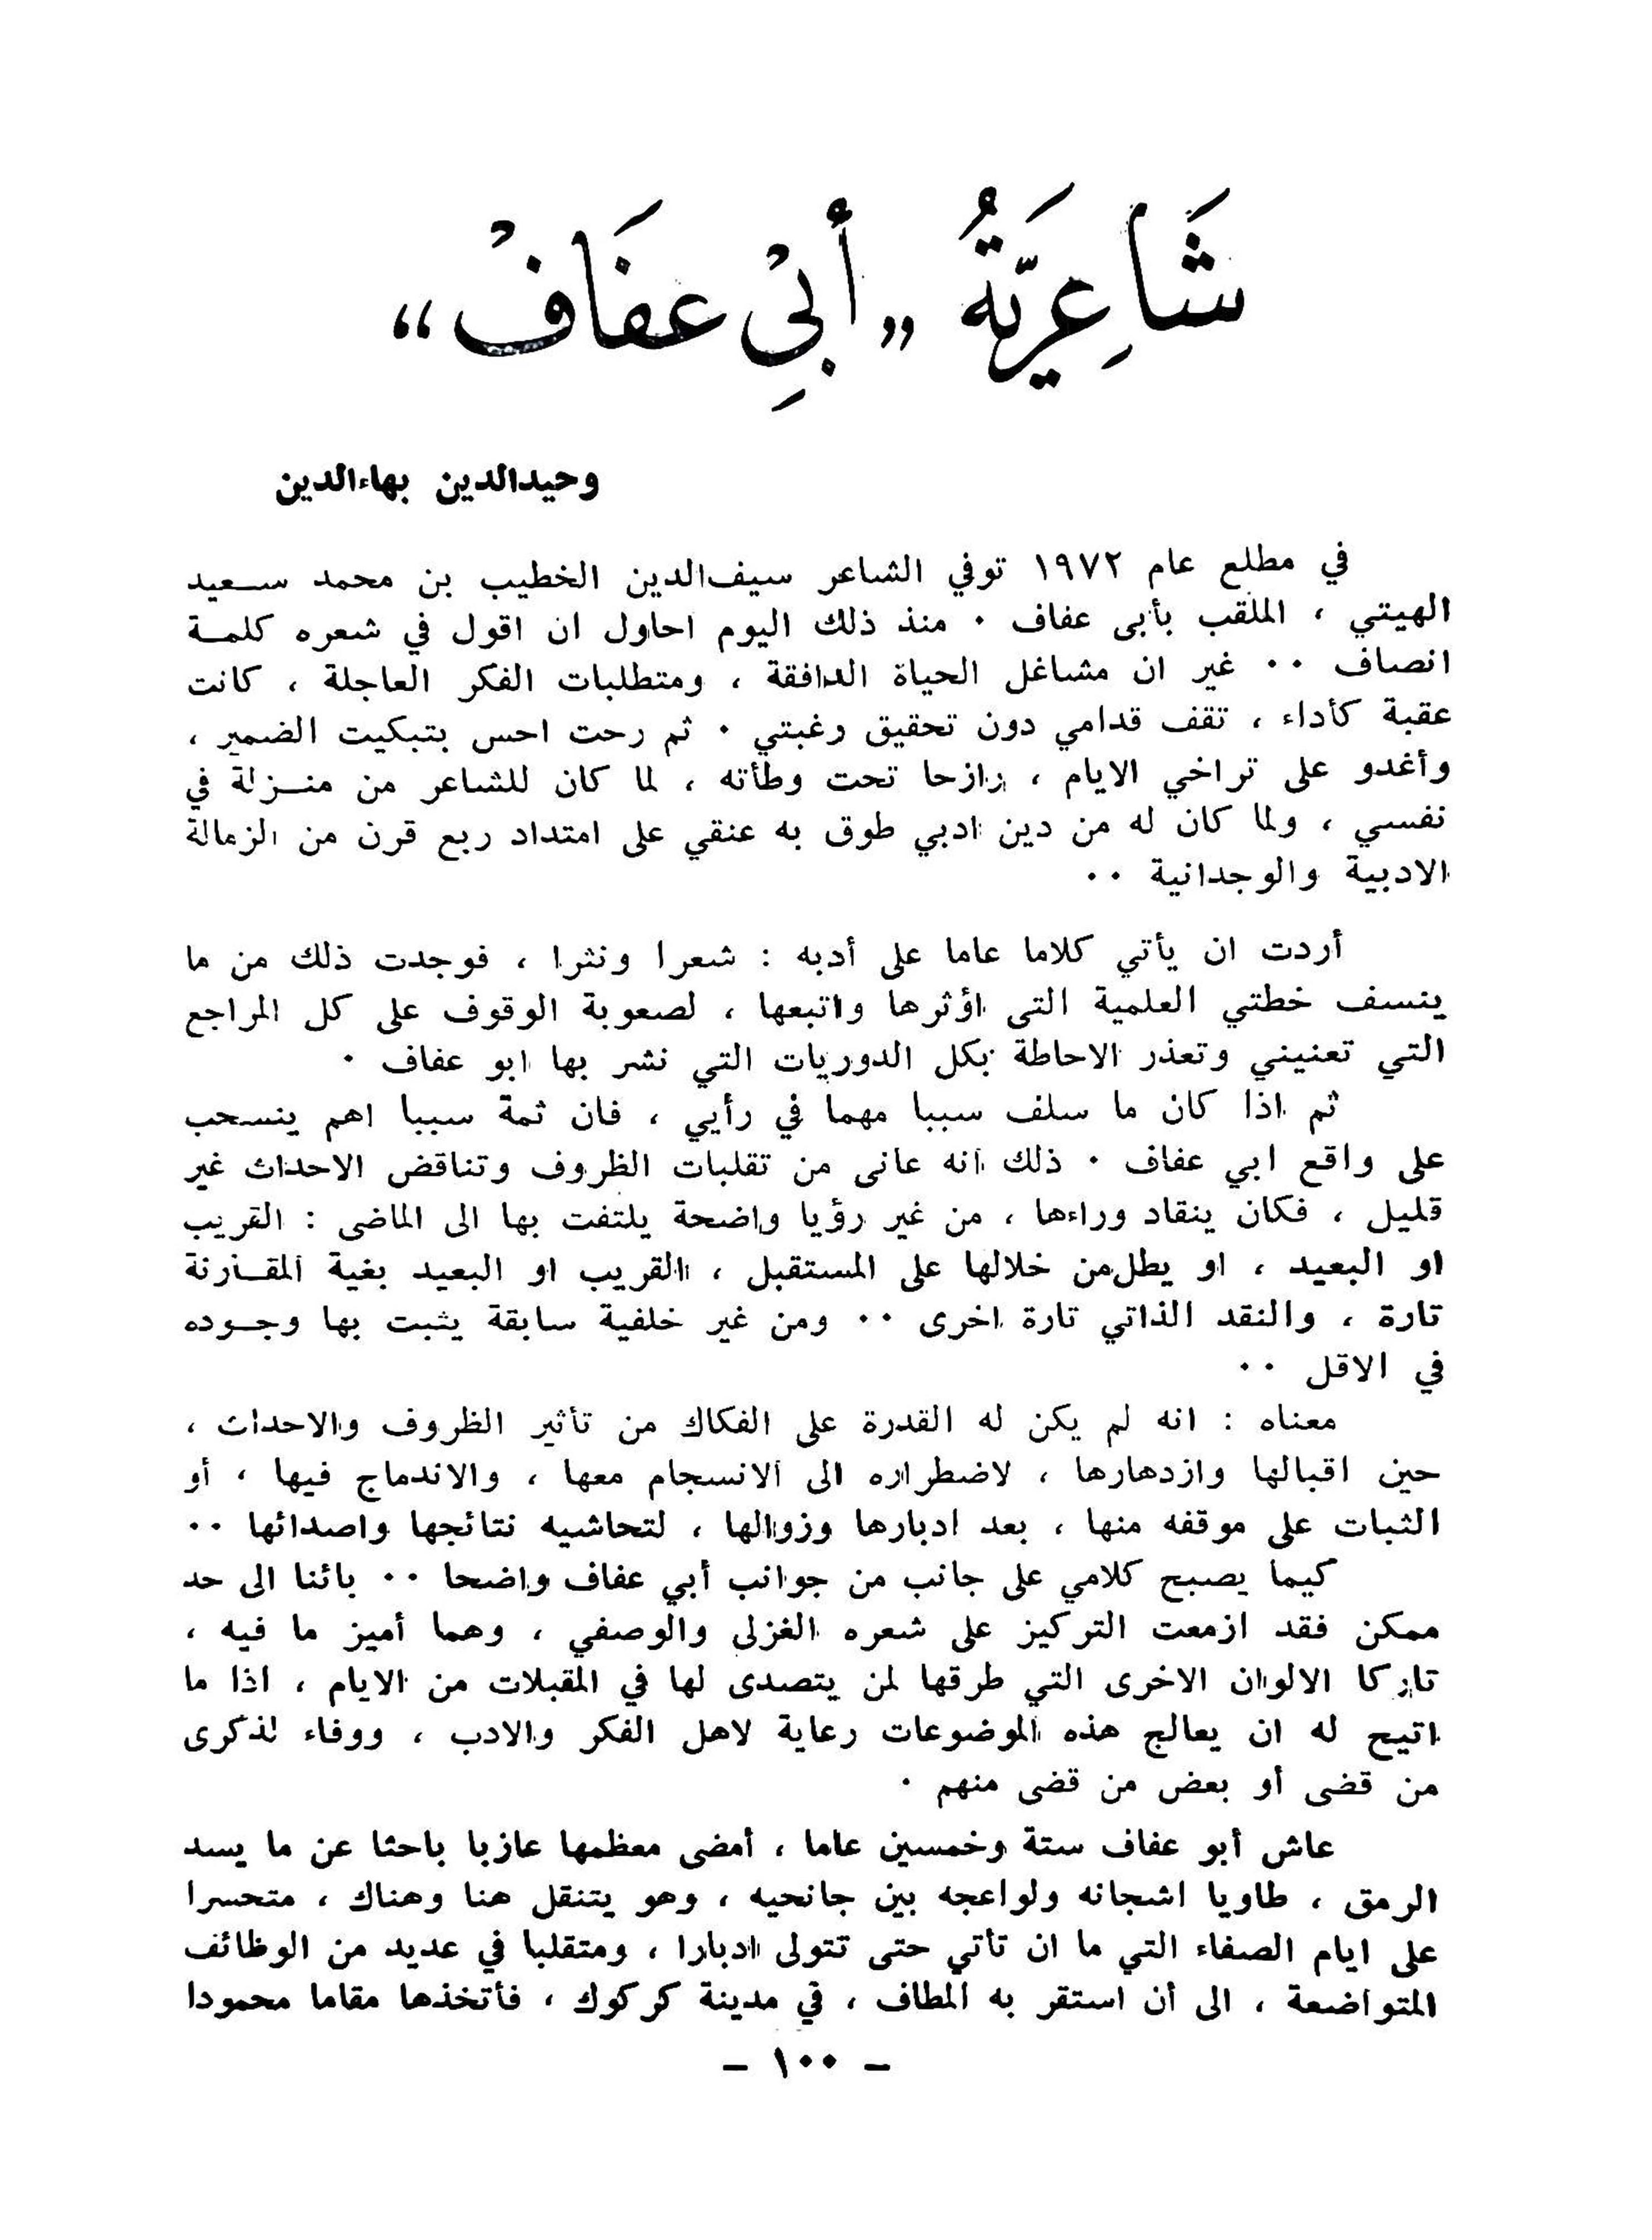 شَاعِرِيَّةُ „أَبِيْ عَفَافْ“
وحيدالدين بهاءالدين
في مطلع عام ١٩٧٢ توفي الشاعر سيف‌الدين الخطيب بن محمد سـعيد
الهيتي ، الملقب بأبى عفاف ٠ منذ ذلك اليوم احاول ان اقول في شعره كلمـة
انصاف ٠٠ غير ان مشاغل الحياة الدافقة ، ومتطلبات الفكر العاجلة ، كانت
عقبة كأداء ، تقف قدامي دون تحقيق رغبتي ٠ ثم رحت احس بتبكيت الضمير ،
وأغدو على تراخي الايام ، رازحا تحت وطأته ، لما كان للشاعر من منـزلة في
نفسي ، ولما كان له من دين ادبي طوق به عنقي على امتداد ربع قرن من الزمالة
الادبية والوجدانية ٠٠
أردت ان يأتي كلاما عاما على أدبه : شعرا ونثرا ، فوجدت ذلك من ما
ينسف خطتي العلمية التي اؤثرها واتبعها ، لصعوبة الوقوف على كل المراجع
التي تعنيني وتعذر الاحاطة بكل الدوريات التي نشر بها ابو عفاف ٠
ثم اذا كان ما سلف سببا مهما في رأيي ، فان ثمة سببا اهم ينسحب
على واقع ابي عفاف ٠ ذلك انه عانى من تقلبات الظروف وتناقض الاحداث غير
قليل ، فكان ينقاد وراءها ، من غير رؤيا واضحة يلتفت بها الى الماضى : القريب
او البعيد ، او يطل من خلالها على المستقبل ، القريب او البعيد بغية المقـارنة
تارة ، والنقد الذاتي تارة اخرى ٠٠ ومن غير خلفية سابقة يثبت بها وجـوده
في الاقل ٠٠
معناه : انه لم يكن له القدرة على الفكاك من تأثير الظروف والاحداث ،
حين اقبالها وازدهارها ، لاضطراره الى الانسجام معها ، والاندماج فيها ، أو
الثبات على موقفه منها ، بعد ادبارها وزوالها ، لتحاشيه نتائجها واصدائها ٠٠
كيما يصبح كلامي على جانب من جوانب أبي عفاف واضحا ٠٠ بائنا الى حد
ممكن فقد ازمعت التركيز على شعره الغزلى والوصفي ، وهما أميز ما فيه ،
تاركا الالوان الاخرى التي طرقها لمن يتصدى لها في المقبلات من الايام ، اذا ما
اتيح له ان يعالج هذه الموضوعات رعاية لاهل الفكر والادب ، ووفاء لذكرى
من قضى أو بعض من قضى منهم ٠
عاش أبو عفاف ستة وخمسين عاما ، أمضى معظمها عازبا باحثا عن ما يسد
الرمق ، طاويا اشجانه ولواعجه بين جانحيه ، وهو يتنقل هنا وهناك ، متحسرا
على ايام الصفاء التي ما ان تأتي حتى تتولى ادبارا ، ومتقلبا في عديد من الوظائف
المتواضعة ، الى أن استقر به المطاف ، في مدينة كركوك ، فأتخذها مقاما محمودا
– ١٠٠ –